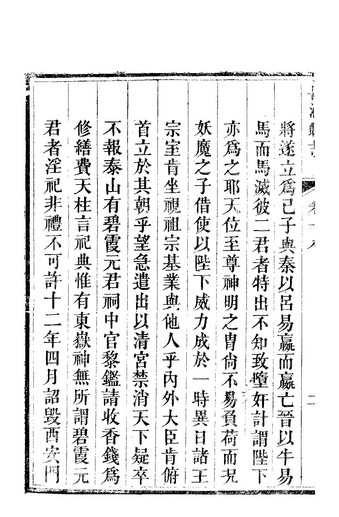 將遂立爲己子與秦以呂易嬴而嬴亡晉以牛易
馬而馬滅彼二君者特出不知致墮奸計謂陛下
亦爲之耶天位至尊神明之胄尙不易負荷而况
妖魔之子借使以陛下威力成於一時異日諸王
宗室肯坐視祖宗基業與他人乎內外大臣肯俯
首立於其朝乎望急遣出以清宮禁消天下疑卒
不報泰山有碧霞元君祠中官黎鑑請收香錢爲
修繕費天柱言祀典惟有東嶽神無所謂碧霞元
君者淫祀非禮不可許十二年四月詔毀西安門